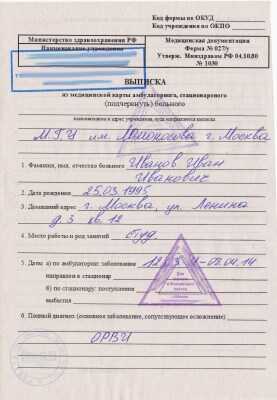 Код формы по ОКУД
Код учреждения по ОКПО
Министерство здравоохранения РФ
Наименование учреждения
Медицинская документация
Форма № 027/у
Утверж. Минздравом РФ 04.10.80
№ 1030
ВЫПИСКА
из медицинской карты амбулаторного, стационарного
(подчеркнуть) больного
наименование и адрес учреждения, куда направляется выписка
МГУ им. Ломоносова г. Москва
1. Фамилия, имя, отчество больного Иванов Иван
Иванович
2. Дата рождения 25.03.1995
3. Домашний адрес г. Москва, ул. Ленина
д. 3 кв. 12
4. Место работы и род занятий студ.
5. Даты: а) по амбулатории: заболевания
02.04.14
направлен в стационар
б) по стационару: поступления
выбытия
6. Полный диагноз (основное заболевание, сопутствующее осложнение)
ОРВИ